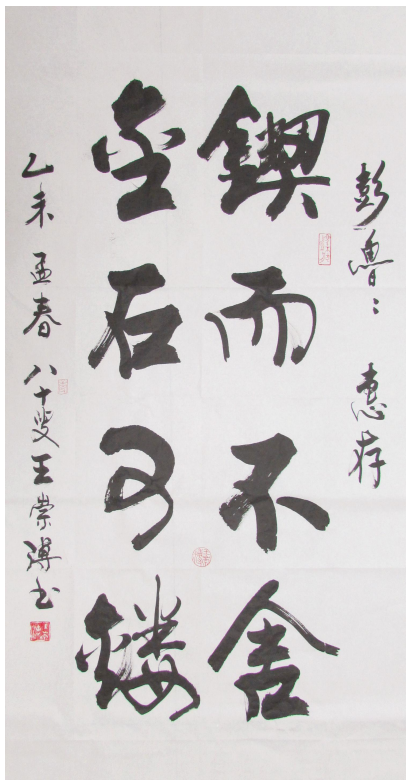 彭鲁鲁 惠存
锲而不舍
金石可镂
乙未孟春八十叟王崇溥书